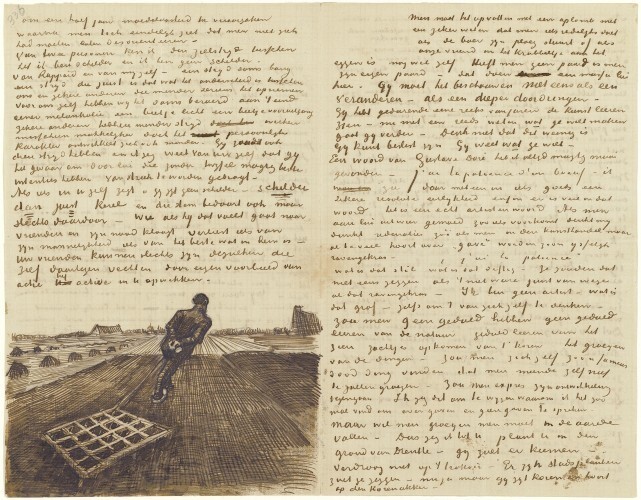 om een half jaar moedeloosheid te veroorzaken
waarna men toch eindelijk ziet dat men zich niet
had moeten laten desorienteren —
Van twee personen ken ik den zielstrijd tusschen
het ik ben schilder en ik ben geen schilder.
Van Rappard en van mijzelf — een strijd soms bang
een strijd die juist is dat wat het onderscheid is tusschen
ons en zekere anderen die minder serieus het opnemen
voor ons zelf hebben wij het soms beroerd aan 't eind
eener melankolie een beetje licht een beetje vooruitgang
zekere anderen hebben minder strijd werken
misschien makkelijker doch het persoonlijk
karakter ontwikkelt zich ook minder. Gij zoudt ook
dien strijd hebben en ik zeg weet van uzelf dat gij
het gevaar van door
intenties hebben van streek te worden gebragt.
Als iets in U zelf zegt „gij zijt geen schilder" — schilder
dan juist kerel en die stem bedaart ook maar
slechts daardoor — wie als hij dat voelt gaat naar
vrienden en zijn nood klaagt verliest iets van
zijn mannelijkheid iets van het beste wat in hem is —
Uw vrienden kunnen slechts zijn dezulken die
zelf daartegen vechten door eigen voorbeeld van
actie de actieve in U opwekken.
Men moet het opvatten met een aplomb met
een zeker weten dat men iets redelijks doet
als de boer zijn ploeg stuurt of als
onze vriend in het krabbeltje aan het
eggen is nog wel zelf. Heeft men geen paard is men
zijn eigen paard — dat doen een massa lui
hier. Gij moet het beschouwen niet eens als een
veranderen — als een dieper doordringen —
Gij hebt gedurende reeds van jaren de kunst leeren
zien — nu met een reeds weten wat ge wilt maken
gaat gij verder — Denk niet dat dit weinig is
Gij kunt beslist zijn Gij weet wat ge wilt —
Een woord van Gustave Doré heb ik altijd mooi
gevonden — j'ai la patience d'un boeuf — ik
zie daar meteen in iets goeds een
zekere resolute eerlijkheid enfin er is veel in dat
woord, het is een echt artisten woord. Als men
aan lui
denkt
al te veel hoort over „gave" worden zoo'n ijselijk
ravengekras — „j'ai la patience"
wat is dat stil wat is dat deftig — ze zouden dat
niet eens zeggen als 't niet ware juist van wege
al dat ravengekras — Ik ben geen artist — wat is
dat grof — zelfs om 't van zich zelf te denken —
zou men geen geduld hebben geen geduld
leeren van de natuur geduld leeren van het
zien zachtjes opkomen van 't koren het groeien
van de dingen — zou men zich zelf zoo'n immens
dood ding vinden dat men meende zelf niet
te zullen groeien — Zou men expres zijn ontwikkeling
tegengaan — Ik zeg dit om te wijzen waarom ik het zoo
mal vind om over gaven en geen gaven te spreken
Maar wil men groeien men moet in de aarde
vallen — Dus zeg ik tot U plant U in den
grond van Drenthe — gij zult er kiemen —
verdroog niet op 't trottoir — Er zijn stadsplanten
zult ge zeggen — nu ja maar gij zijt koren en hoort
op den korenakker —